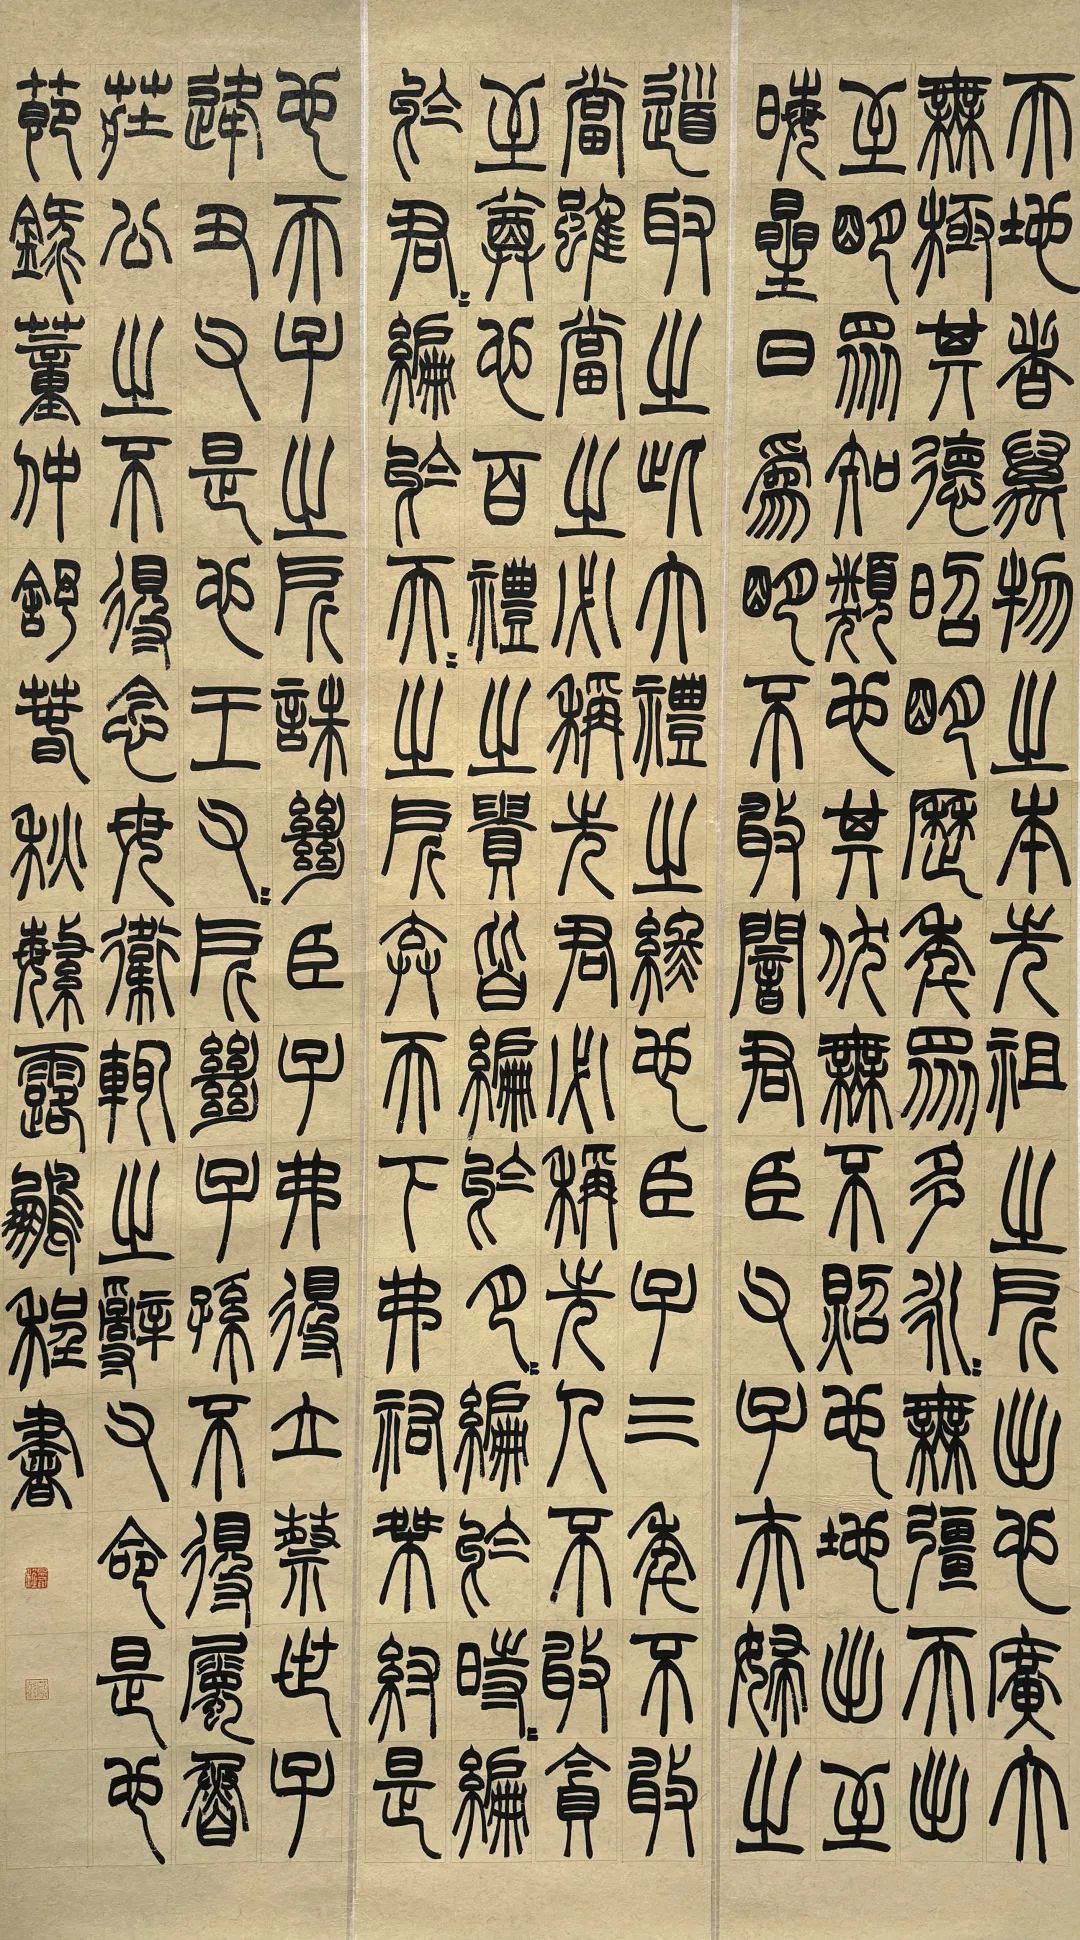 天地者萬物之本先祖之所出也廣大
無極其德昭明歷年眾多永〻無疆天出
至明眾知類也其伏無不炤也地出至
晦星日為明不敢闇君臣父子夫婦之
道取之此大禮之終也臣子三年不敢
當雖當之必稱先君必稱先人不敢貪
至尊也百禮之貴皆編於月〻編於時〻編
於君〻編於天〻之所棄天下弗祐桀紂是
也天子之所誅絕臣子弗得立蔡世子
逢丑父是也王父〻所絕子孫不得屬魯
莊公之不得念母衛輒之辭父命是也
節錄董仲舒春秋繁露鵬程書